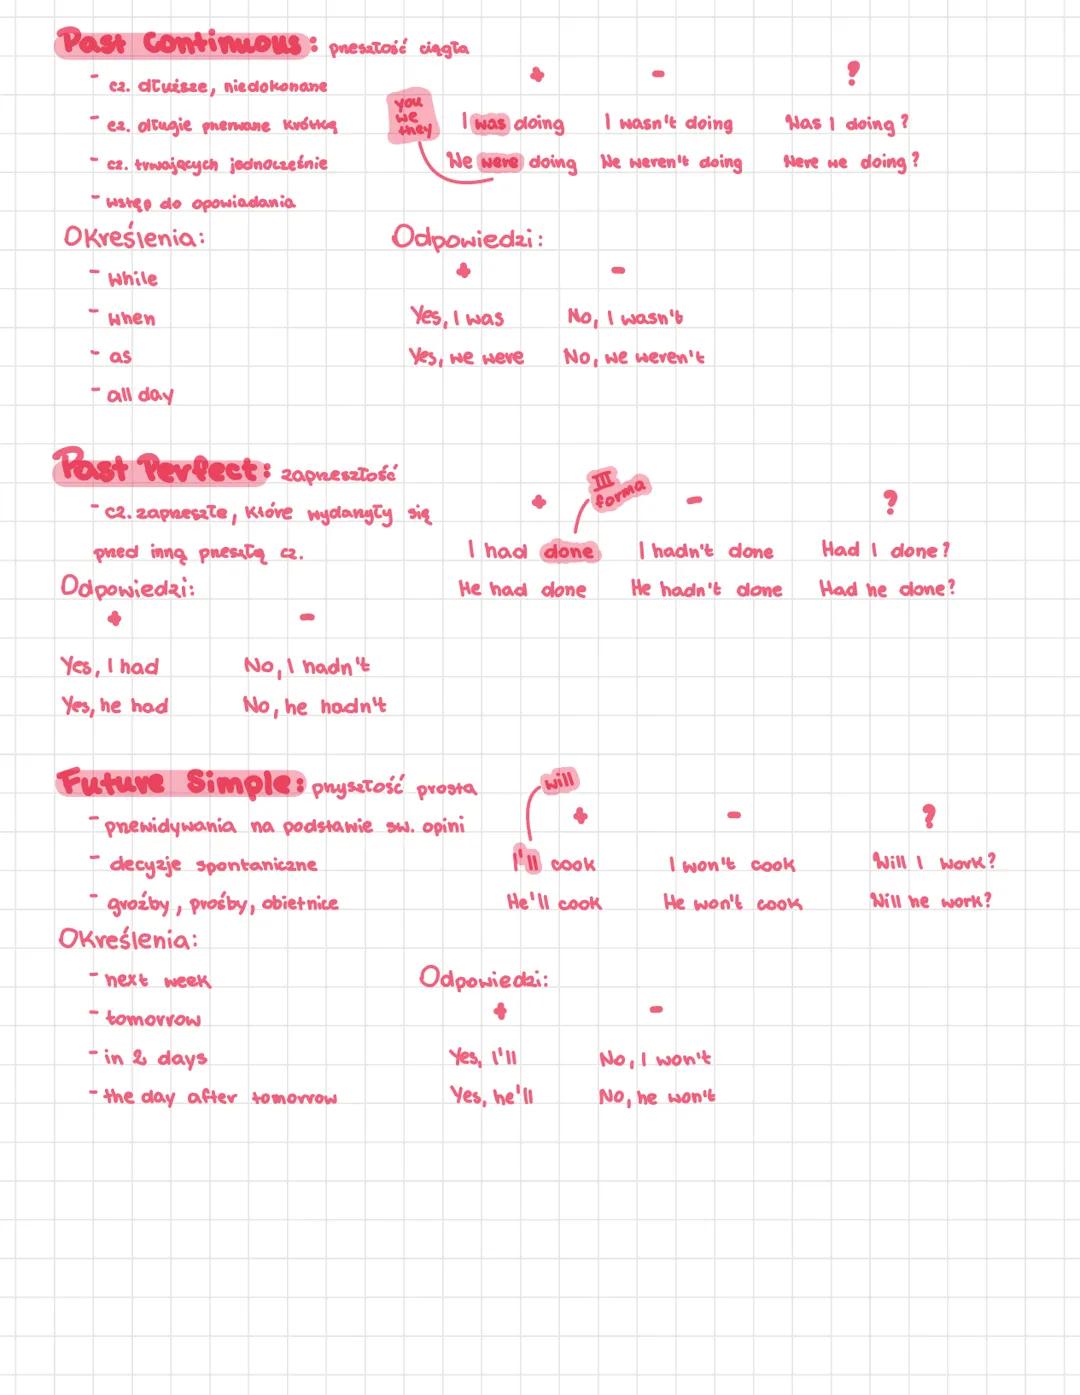 Past Continuous: przeszłość ciągła
+ - ?
- cz. dłuższe, niedokonane
- cz. długie przerwane krótką
you
we
they
I was doing I wasn't doing Was I doing?
- cz. trwających jednocześnie
We were doing We weren't doing Were we doing?
- wstęp do opowiadania
Określenia:
- while
- when
- as
- all day
Odpowiedzi:
+ -
Yes, I was No, I wasn't
Yes, we were No, we weren't
Past Perfect: zaprzeszłość
- cz. zaprzeszłe, które wydarzyły się
przed inną przeszłą cz.
III
forma
+ - ?
I had done I hadn't done Had I done?
He had done He hadn't done Had he done?
Odpowiedzi:
+ -
Yes, I had No, I hadn't
Yes, he had No, he hadn't
Future Simple: przyszłość prosta
- przewidywania na podstawie sw. opini
- decyzje spontaniczne
- groźby, prośby, obietnice
will
+ - ?
I'll cook I won't cook Will I work?
He'll cook He won't cook Will he work?
Określenia:
- next week
- tomorrow
- in 2 days
- the day after tomorrow
Odpowiedzi:
+ -
Yes, I'll No, I won't
Yes, he'll No, he won't